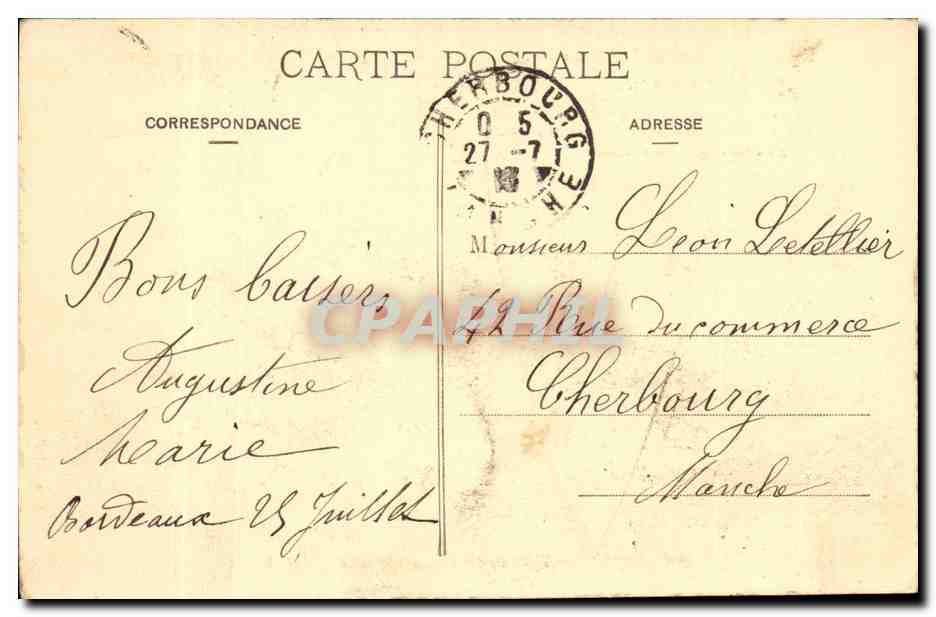 CARTE POSTALE
CORRESPONDANCE
ADRESSE
CHERBOURG
0 5
27 -7
Monsieur Léon Letellier
42 Rue du commerce
Cherbourg
Manche
Bons baisers
Augustine
Marie
Bordeaux 25 Juillet
CPAPHIL